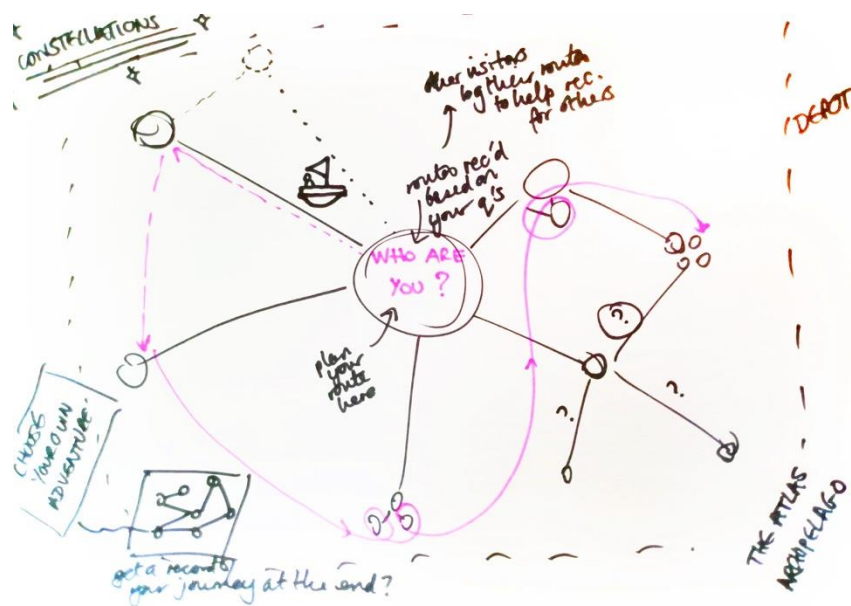 CONSTELLATIONS
other visitors
log their routes
to help rec.
for others
DEPOT
routes rec'd
based on
your q's
WHO ARE
YOU ?
plan
your
route
here
?
?
?
CHOOSE
YOUR OWN
ADVENTURE.
get a record of
your journey at the end?
THE ATLAS
ARCHIPELAGO